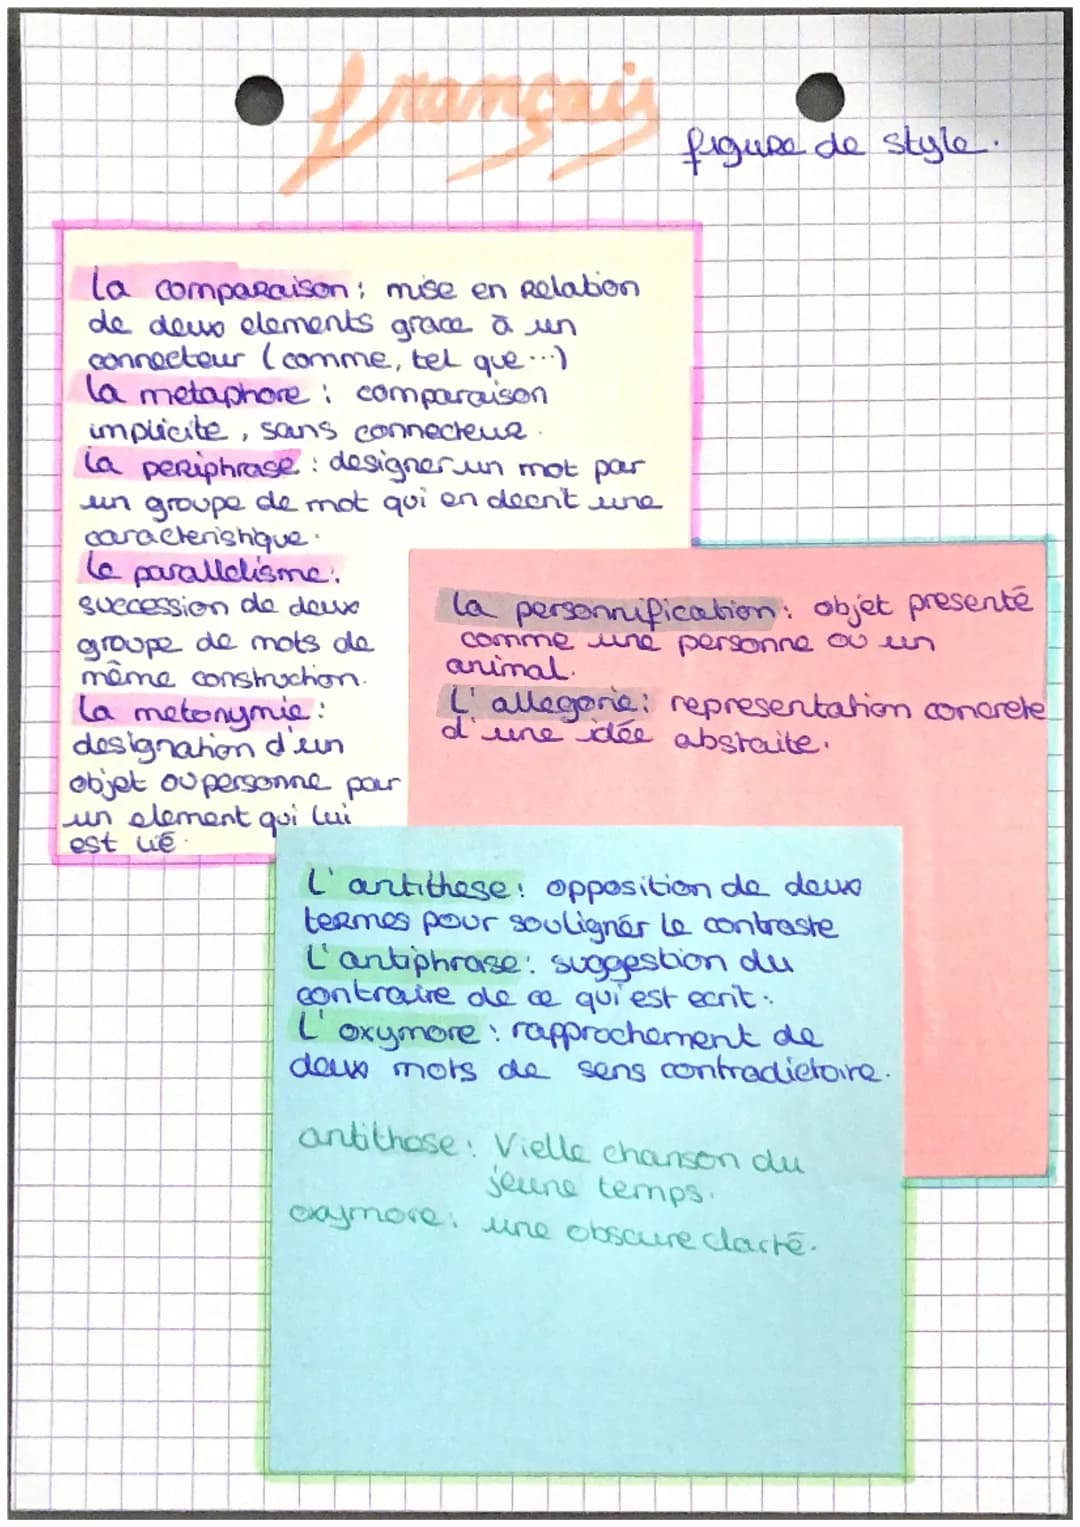 français
figure de style.
La comparaison: mise en relation
de deux elements grace à un
connecteur (comme, tel que ...)
La metaphore : comparaison
implicite, sans connecteur.
La periphrase : designer un mot par
un groupe de mot qui en decrit une
caracteristique.
Le parallelisme:
succession de deux
groupe de mots de
même construction.
La metonymie :
designation d'un
objet ou personne par
un element qui lui
est lié.
La personnification: objet presenté
comme une personne ou un
animal.
L'allegorie: representation concrete
d'une idée abstraite.
L'antithese: opposition de deux
termes pour souligner le contraste
L'antiphrase: suggestion du
contraire de ce qui est ecrit.
L'oxymore : rapprochement de
deux mots de sens contradictoire.
antithese: Vielle chanson du
jeune temps.
oxymore: une obscure clarté.